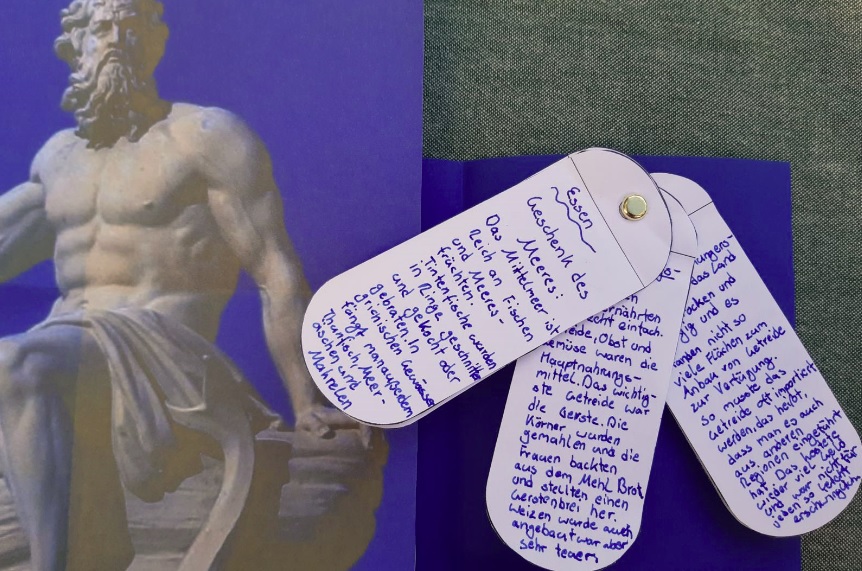 Essen
Geschenk des
Meeres:
Das Mittelmeer ist
Reich an Fischen
und Meeres-
früchten.
Tintenfische wurden
in Ringe geschnitten
und gekocht oder
gebraten. In
griechischen Gewässern
fängt man außerdem
Thunfisch, Meer-
äschen und
Makrelen
ernährten
recht einfach.
Obst und
Gemüse waren die
Hauptnahrungs-
mittel. Das wichtig-
ste Getreide war
die Gerste. Die
Körner wurden
gemahlen und die
Frauen backten
aus dem Mehl Brot
und stellten einen
Gerstenbrei her.
Weizen wurde auch
angebaut war aber
sehr teuer.
das Land
trocken und
und es
nicht so
viele Flächen zum
Anbau von Getreide
zur Verfügung.
so musste das
Getreide oft importiert
werden, das heißt,
dass man es auch
aus anderen
Regionen eingeführt
hat. Das kostete
wieder viel Geld
und war nicht für
jeden so leicht
erschwinglich